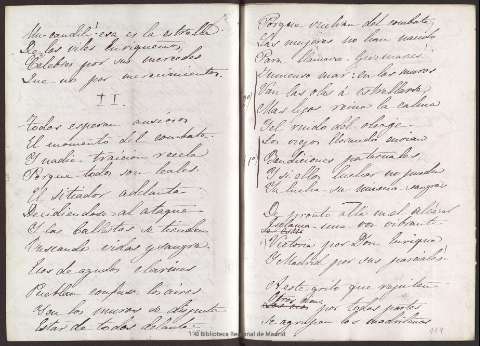 Un candil: esa es la estrella
De los viles Enriqueños,
Celebres por sus mercedes
Que no por merecimientos.
II
Todos esperan ansiosos
El momento del combate
Y nadie traicion recela
Porque todos son leales.
El sitiador adelanta
Decidiendose al ataque
Y las ballestas se tienden
buscando vidas y sangre.
Ecos de agudos clarines
Pueblan confusos los aires
Y en los muros de
Estar de todos delante
Porque vuelvan del combate;
Las mujeres no han nacido
Para llamarse
Inmenso mar: en los muros
Van las olas á estrellarse,
Mas lejos reina la calma
Y el ruido del oleage.
Los viejos llorando envian
Bendiciones paternales
Y si ellos luchar no pueden
La lucha su misma sangre
De pronto allá en el alcázar
Esclama una voz vibrante
Victoria por Don Enrique
Y Madrid por sus parciales.
A este grito que repiten
Otros diez por todas partes
Se agrupan los madrileños
© Biblioteca Regional de Madrid